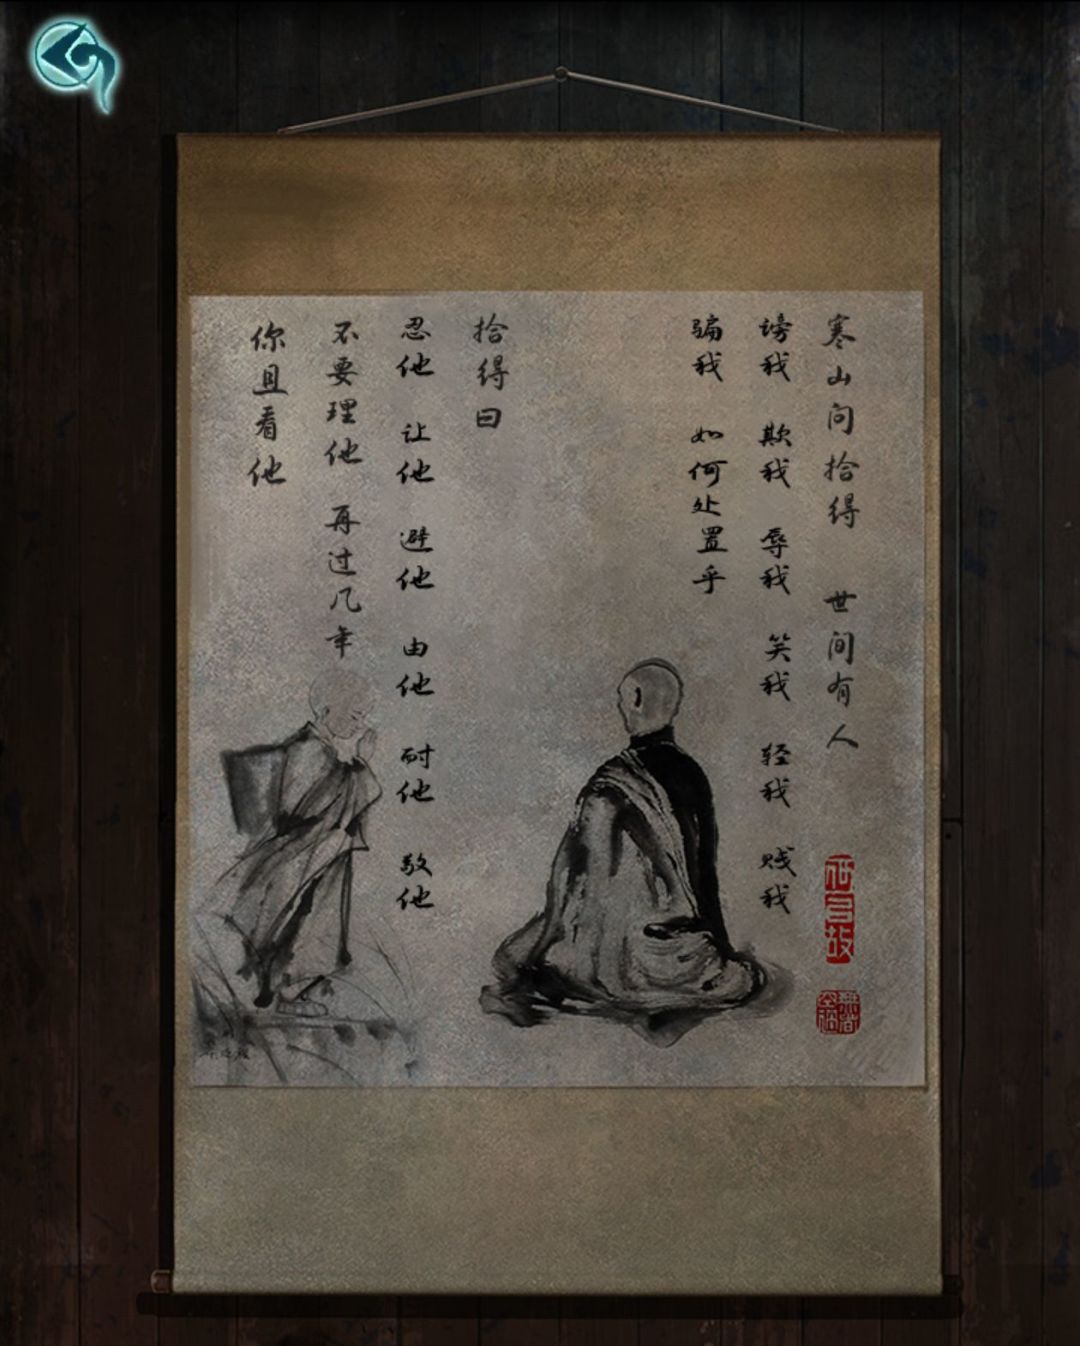 寒山问拾得 世间有人
谤我 欺我 辱我 笑我 轻我 贱我
骗我 如何处置乎
拾得曰
忍他 让他 避他 由他 耐他 敬他
不要理他 再过几年
你且看他